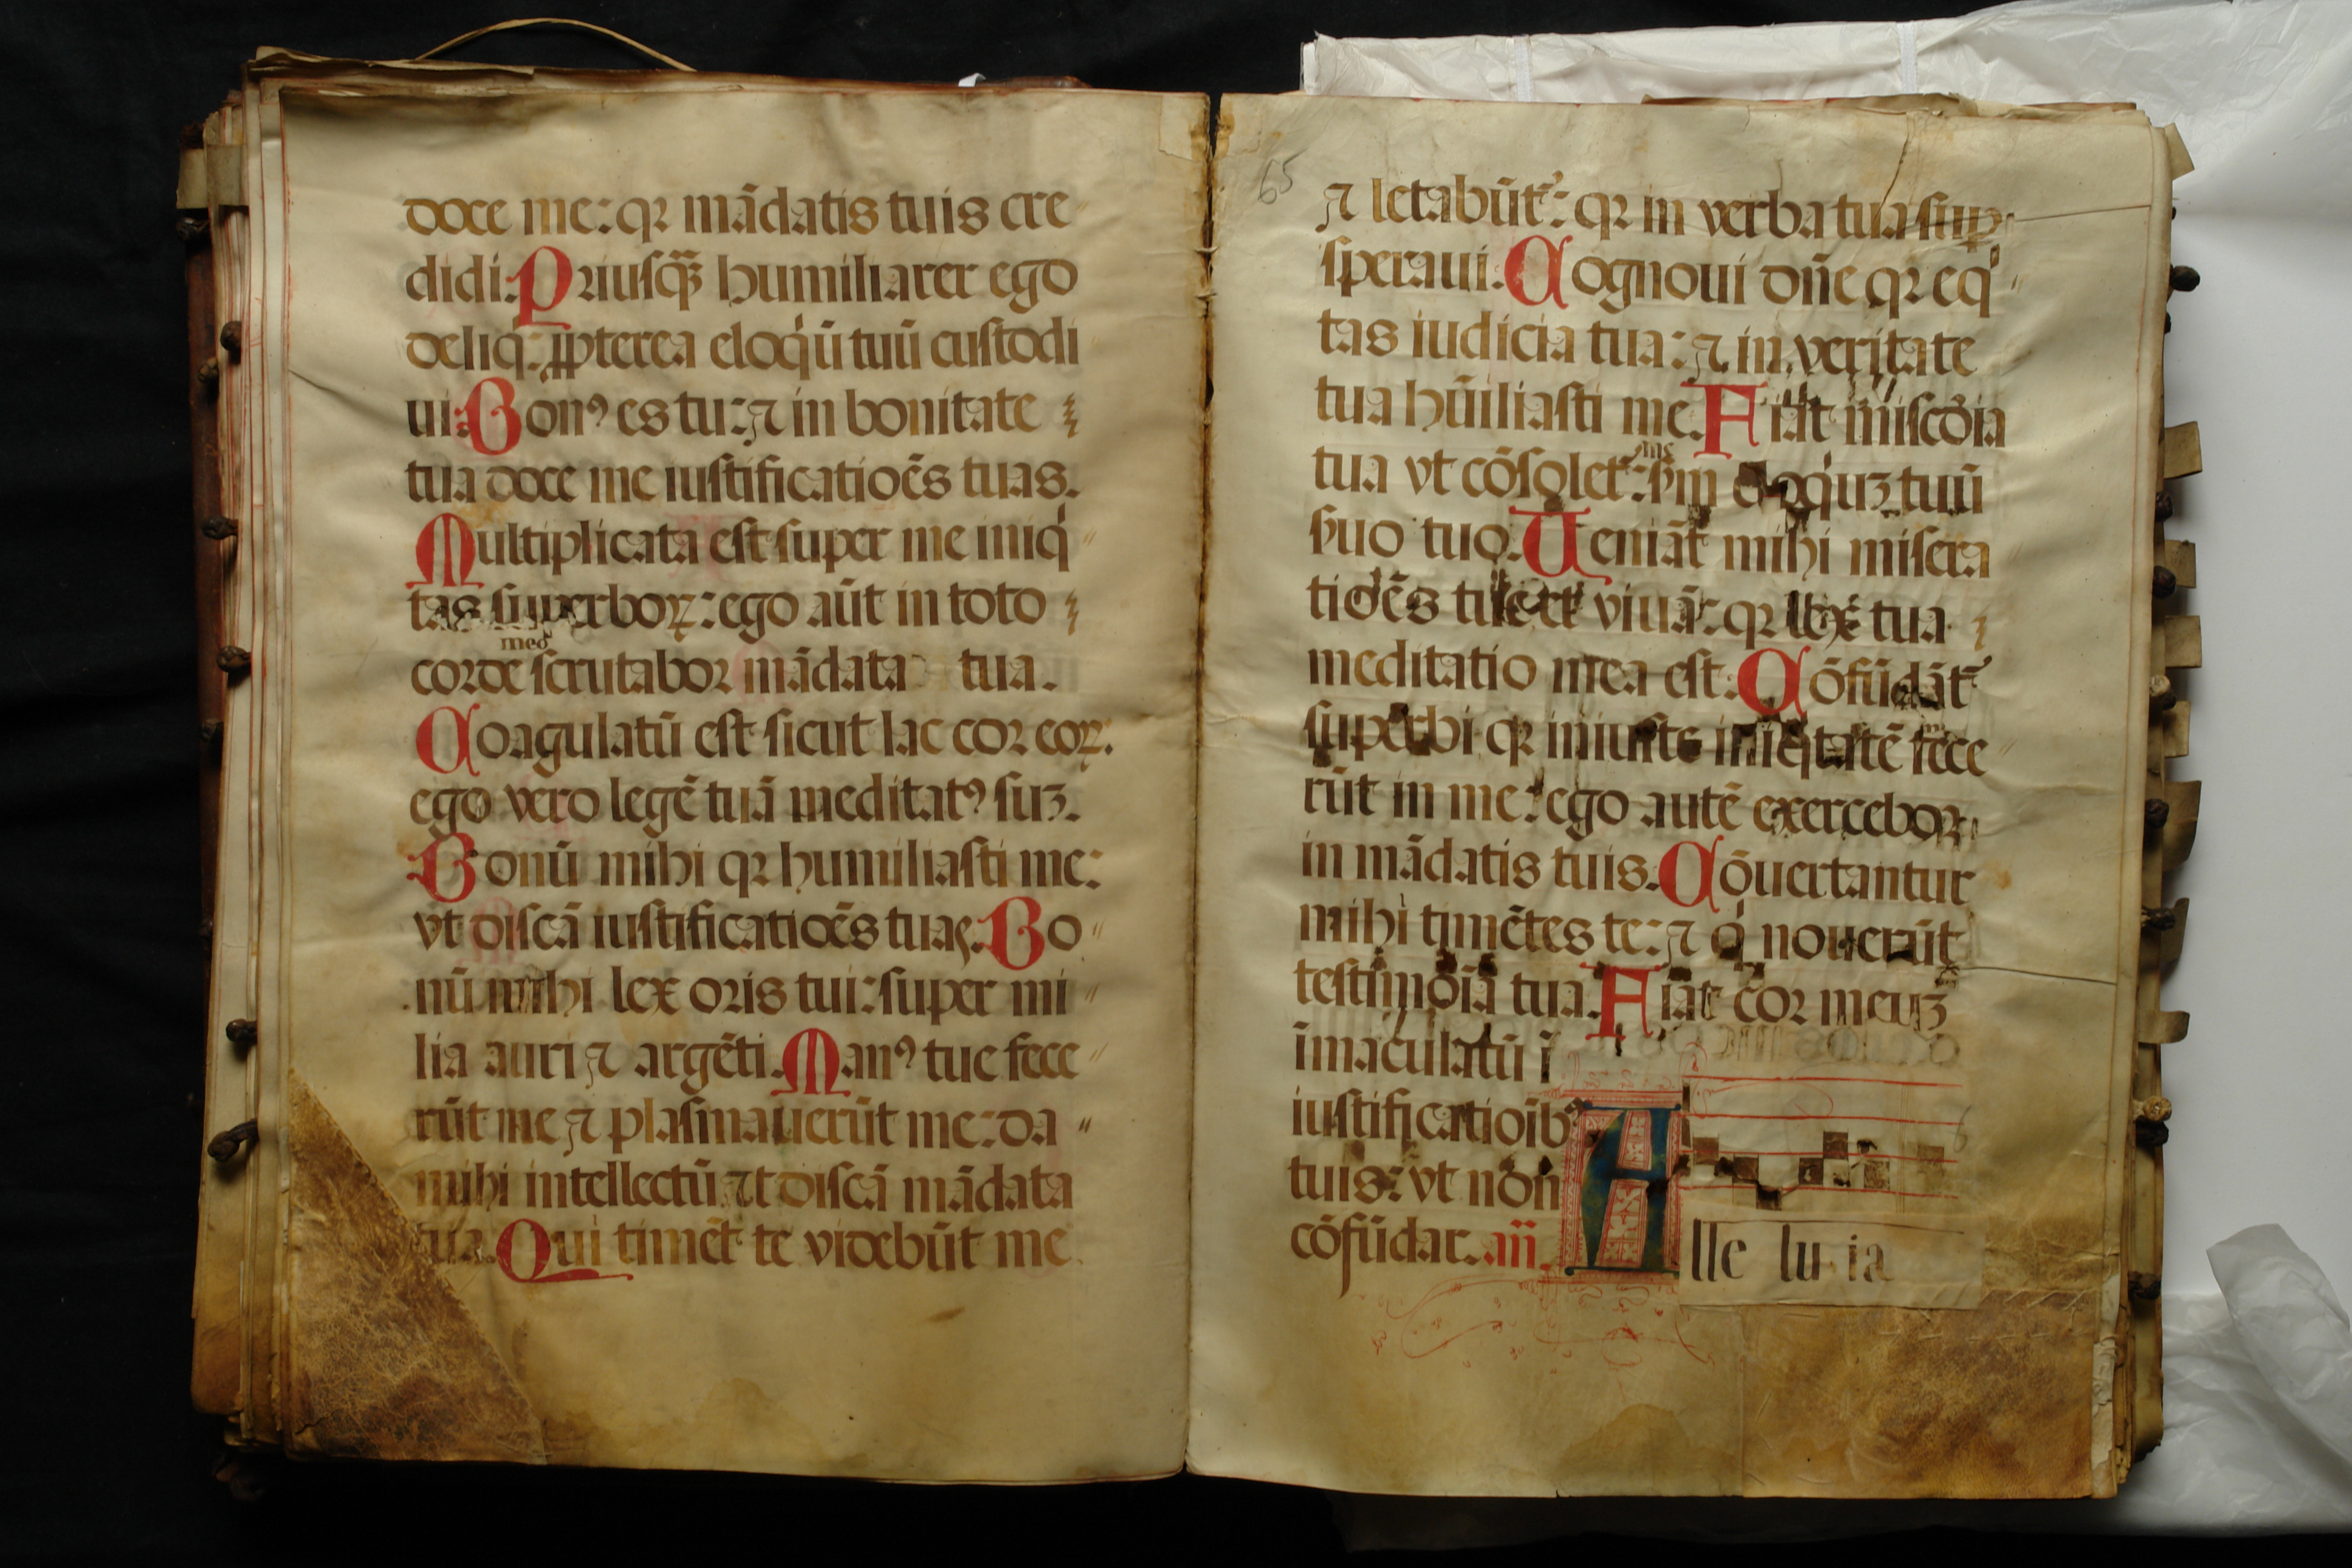 doce me: qꝛ mādatis tuis cre
didi. Priusqꝫ̄ humiliarer ego
deliq̇: ꝓpterea eloq̇ū tuū custodi
ui. Bonꝰ es tu: ⁊ in bonitate
tua doce me iustificatiōes tuas.
Multiplicata est super me iniq̇
tas superboꝝ: ego aūt in toto
meo
corde scrutabor mādata tua.
Coagulatū est sicut lac cor eoꝝ.
ego vero legē tuā meditatꝰ suꝫ.
Bonū mihi qꝛ humiliasti me:
vt discā iustificatiōes tuas. Bo
nū mihi lex oris tui: super mi
lia auri ⁊ argēti. Manꝰ tue fece
rūt me ⁊ plasmauerūt me: da
mihi intellectū ⁊t discā mādata
tua. Qui timēt te videbūt me
65
⁊ letabūt᷑: qꝛ in verba tua suꝑ
speraui. Cognoui dn̄e qꝛ eq̇
tas iudicia tua: ⁊ in veritate
tua hūiliasti me. Fiat miscd̄ia
me
tua vt cōsolet᷑: sm̄ eloq̇uꝫ tuū
suo tuo. Ueniāt mihi misera
tiōes tue et viuā: qꝛ lex tua
meditatio mea est. Cōfūdāt᷑
superbi qꝛ iniuste iniq̇tatē fece
rūt in me: ego autē exercebor
in mādatis tuis. Cōuertantur
mihi timētes te: ⁊ q̇ nouerūt
testimōia tua. Fiat cor meuꝫ
īmaculatū ī
iustificatioībꝰ
tuis: vt non
cōfūdar. an̄. Alle lu ia